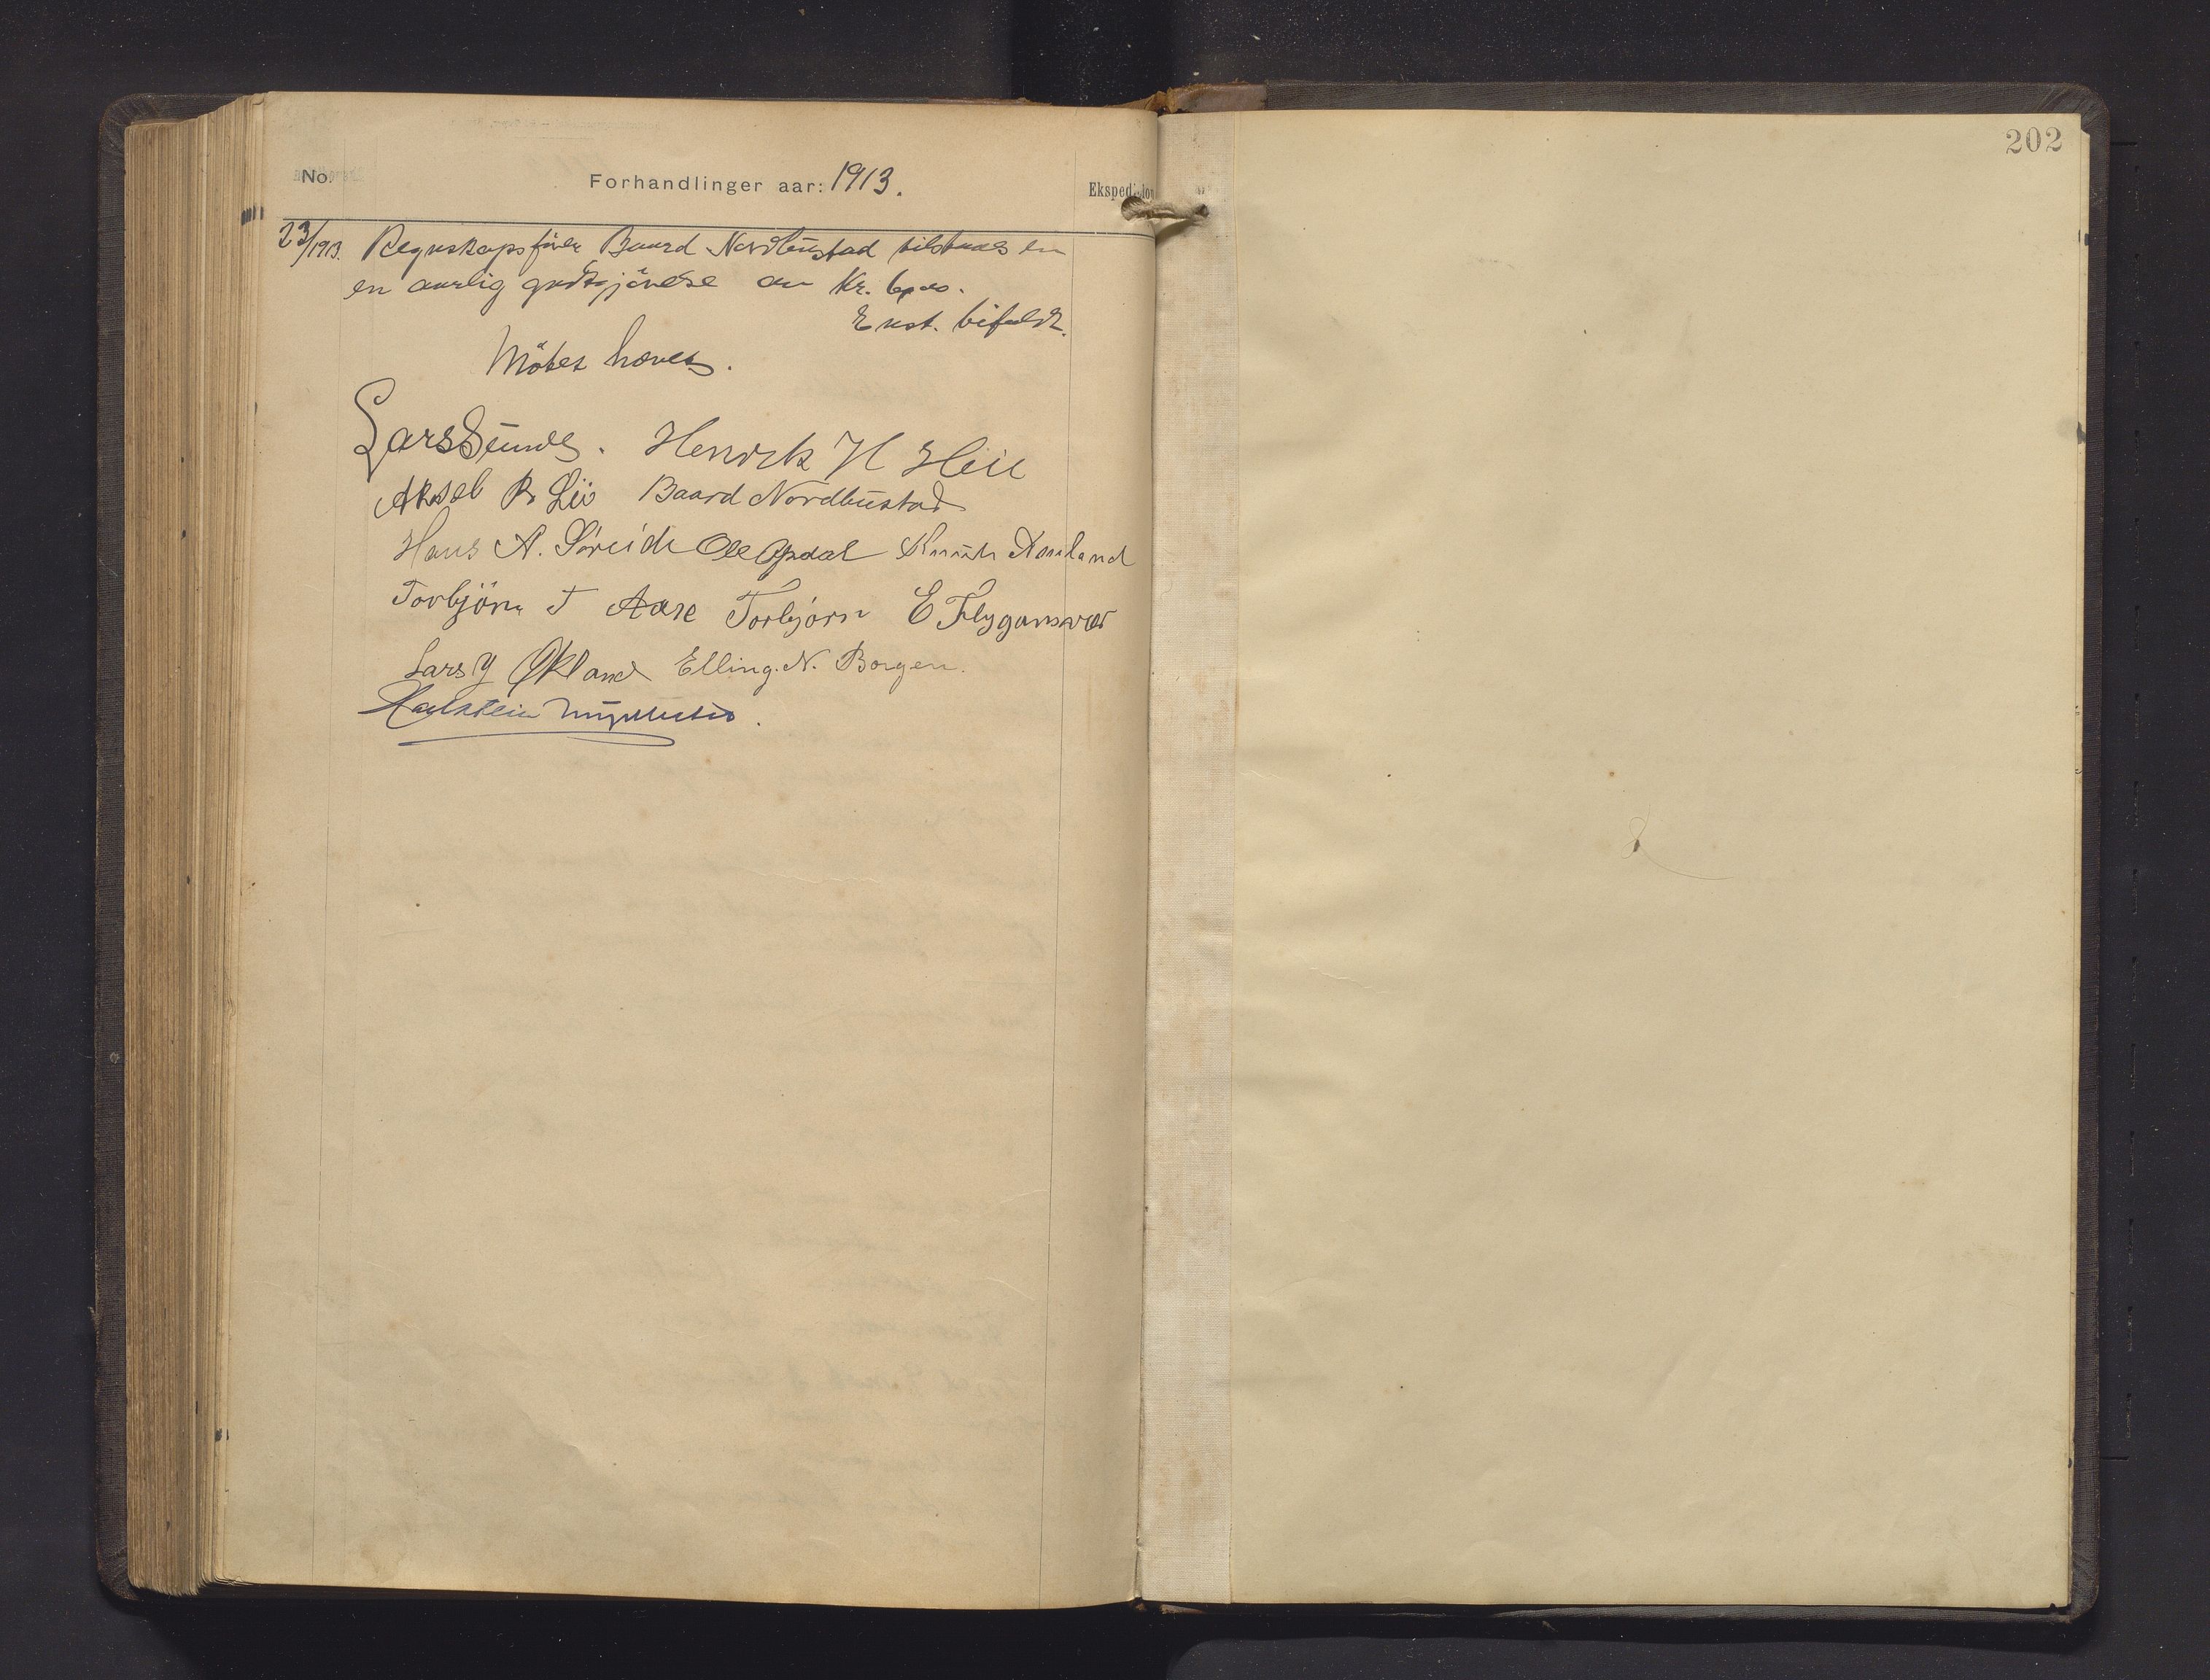 202
No. Forhandlinger aar: 1913. Ekspedition
23/1913. Regnskapsfører Baard Nordbustad tilstaaes en
en aarlig godtgjörelse av Kr.
Enst. bifaldt.
Mötet hævet.
Lars Sunde. Henrik H Heie
Aksel P. Liö Baard Nordbustad
Hans A. Søreide Ole Opdal Knut Amland
Torbjörn T Aase Torbjørn E Flygansvær
Lars Økland Elling. N. Borgen.
Halstein